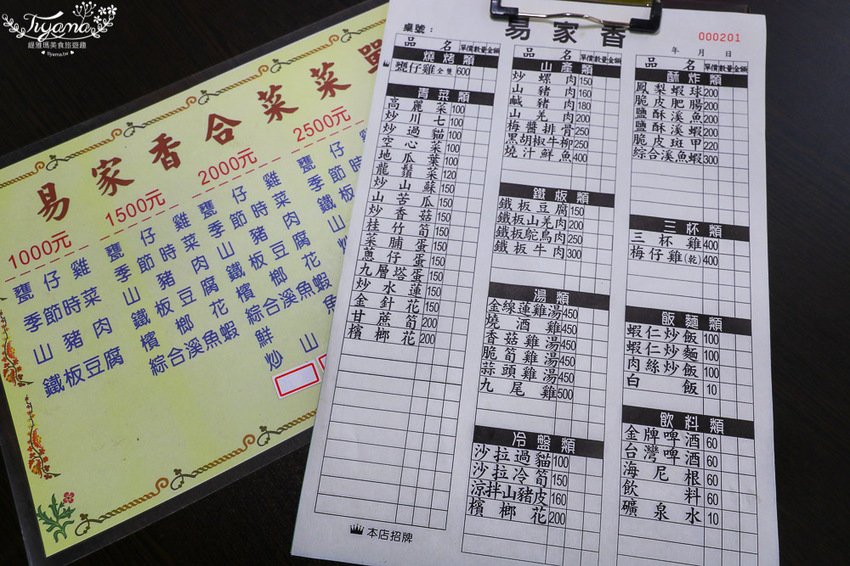 Tiyama
緹雅瑪美食旅遊趣
Tiyama.tw
易家香合菜菜單
1000元
甕仔雞
季節時菜
山豬肉
鐵板豆腐
1500元
甕仔雞
季節時菜
山豬肉
鐵板豆腐
檳榔花
綜合溪魚蝦
2000元
甕仔雞
季節時菜
山豬肉
鐵板豆腐
檳榔花
綜合溪魚蝦
鮮魚
炒山
2500元
甕仔
季節
鐵板
炒山
桌號：
易家香
000201
年 月 日
品名 單價 數量 金額
燒烤類
甕仔雞(全隻) 600
青菜類
高麗菜 100
炒川七 100
炒過貓 100
空心菜 100
地瓜葉 100
龍鬚菜 120
炒山蘇 150
炒苦瓜 150
炒香菇 150
桂竹筍 150
菜脯蛋 150
蔥仔蛋 150
九層塔蛋 150
炒水蓮 150
金針花 150
甘蔗筍 200
檳榔花 200
本店招牌
品名 單價 數量 金額
山產類
炒螺肉 150
山豬肉 160
鹹豬肉 180
山羌肉 200
梅醬排骨 250
黑胡椒牛柳 250
燒汁鮮魚 400
鐵板類
鐵板豆腐 150
鐵板山羌肉 200
鐵板鴕鳥肉 250
鐵板牛肉 300
湯類
金線蓮雞湯 450
燒酒雞 450
香菇雞湯 450
脆筍雞湯 450
蒜頭雞湯 450
九尾雞 500
冷盤類
沙拉過貓 100
沙拉冷筍 150
涼拌山豬皮 160
檳榔花 200
品名 單價 數量 金額
酥炸類
鳳梨蝦球 200
脆皮肥腸 200
鹽酥溪魚 200
鹽酥溪蝦 200
脆皮斑甲 220
綜合溪魚蝦 300
三杯類
三杯雞 400
梅仔雞(乾) 400
飯麵類
蝦仁炒飯 100
蝦仁炒麵 100
肉絲炒飯 100
白飯 10
飲料類
金牌啤酒 60
台灣啤酒 60
海尼根 60
飲料 60
礦泉水 10